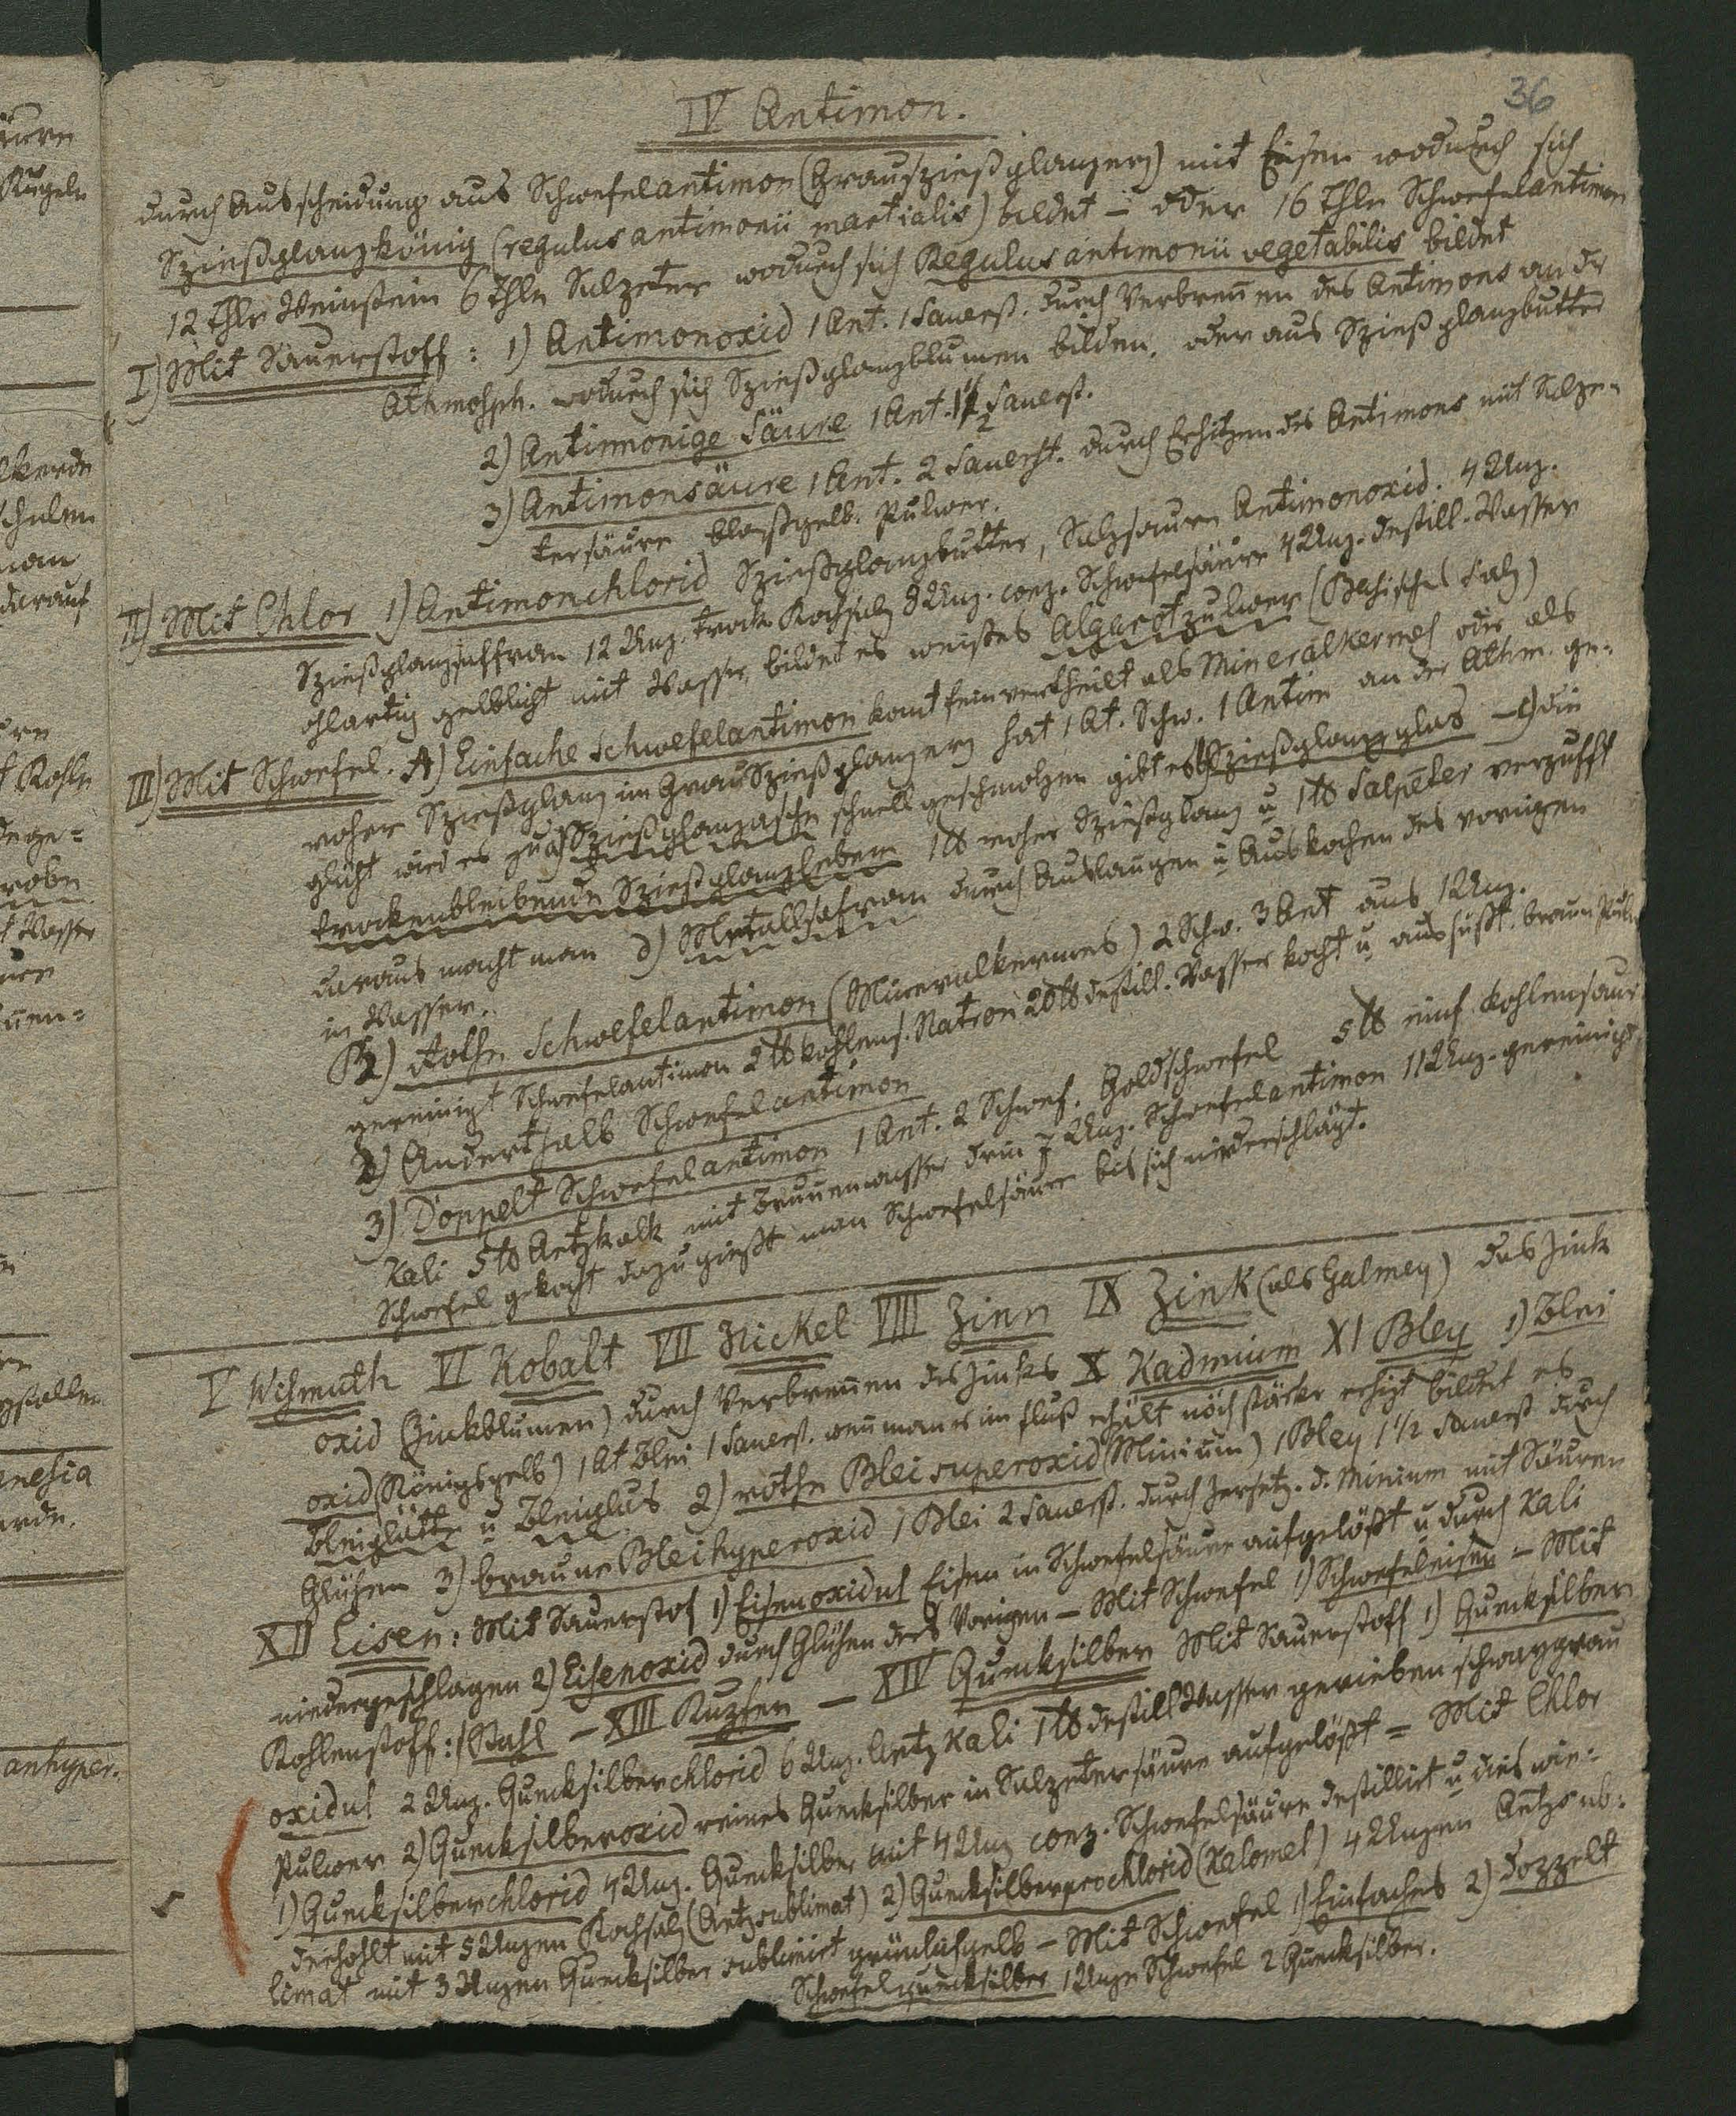 36
IV Antimon.
durch Ausscheidung aus Schwefelantimon (Grauspießglanzerz) mit Eisen wodurch sich
Spießglanzkönig (regulus antimonii martialis) bildet – oder 16 Thle Schwefelantimon
12 Thle Weinstein 6 Thle Salpeter wodurch sich Regulus antimonii vegetabilis bildet
I) Mit Sauerstoff: 1) Antimonoxid 1 Ant. 1 Sauerst. durch Verbrennen des Antimons an der
Athmosph. wodurch sich Spießglanzblumen bilden, oder aus Spießglanzbutter
2) Antimonige Säure 1 Ant. 1½ Sauerst.
3) Antimonsäure 1 Ant. 2 Sauerst. durch Erhitzen des Antimons mit Salpe-
tersäure blaßgelb. Pulver.
II) Mit Chlor 1) Antimonchlorid Spießglanzbutter, Salzsaures Antimonoxid. 4 Unz.
Spießglanzsaffran 12 Unz. trock. Kochsalz 8 Unz. conz. Schwefelsäure 4 Unz. destill. Wasser
ohlartig gelblicht mit Wasser, bildet es weißes Algarotpulver (Basisches Salz)
III) Mit Schwefel. A) Einfache Schwefelantimon komt fein vertheilt als Mineralkermes oder als
roher Spießglanz im Grauspießglanzerz hat 1 At. Schw. 1 Antim an der Athm. ge-
glüht wird es zu a) Spießglanzasche schnell geschmolzen gibt es b) Spießglanzglas – c) die
trockenbleibende Spießglanzleber 1 ℔ roher Spießglanz u 1 ℔ Salpeter verpufft
daraus macht man d) Metallsafran durch Auslaugen u Auskochen des vorigen
in Wasser.
B) rothe Schwefelantimon (Mineralkermes) 2 Schw. 3 Ant aus 1 Unz.
gereinigt Schwefelantimon 2 ℔ kohlens. Natron 20 ℔ destill. Wasser kocht u aussüßt. braun Pulv
2) Anderthalb Schwefelantimon
3) Doppelt Schwefelantimon 1 Ant. 2 Schwef. Goldschwefel 5 ℔ einf. kohlensaur
Kali 5 ℔ Aetzkalk mit Brunnenwasser drin 7 Unz. Schwefelantimon 11 Unz. gereinigt
Schwefel gekocht dazu gießt man Schwefelsäure bis sich niederschlägt.
V Wismuth VI Kobalt VII Nickel VIII Zinn IX Zink (als Galmey) das Zink
oxid (Zinkblumen) durch Verbrennen des Zinks X Kadmium XI Bley 1) Blei
oxid (Königsgelb) 1 At Blei 1 Sauerst. wenn man es im Fluß erhält noch stärker erhizt bildet es
Bleiglätte u Bleiglas 2) rothe Bleisuperoxid (Minium) 1 Bley 1 1/2 Sauerst durch
Glühen 3) braune Bleihyperoxid 1 Blei 2 Sauerst. durch Zersetz. d. Minium mit Säuren
XII Eisen: Mit Sauerstof 1) Eisenoxidul Eisen in Schwefelsäure aufgelößt u durch Kali
niedergeschlagen 2) Eisenoxid durch Glühen des Vorigen – Mit Schwefel 1) Schwefeleisen – Mit
Kohlenstoff: Stahl – XIII Kupfer – XIV Quecksilber Mit Sauerstoff 1) Quecksilber
oxidul 2 Unz. Quecksilberchlorid 6 Unz. Aetz Kali 1 ℔ destill Wasser gerieben schwarzgrau
Pulver 2) Quecksilberoxid reines Quecksilber in Salpetersäure aufgelößt = Mit Chlor
1) Quecksilberchlorid 4 Unz. Quecksilber mit 4 Unz conz. Schwefelsäure destillirt u dies wie-
derhohlt mit 5 Unzen Kochsalz (Aetzsublimat) 2) Quecksilberprochlorid (Kalomel) 4 Unzen Aetzsub-
limat mit 3 Unzen Quecksilber sublimirt grünlichgelb – Mit Schwefel 1) Einfaches 2) Doppelt
Schwefelquecksilber 1 Unze Schwefel 2 Quecksilber.